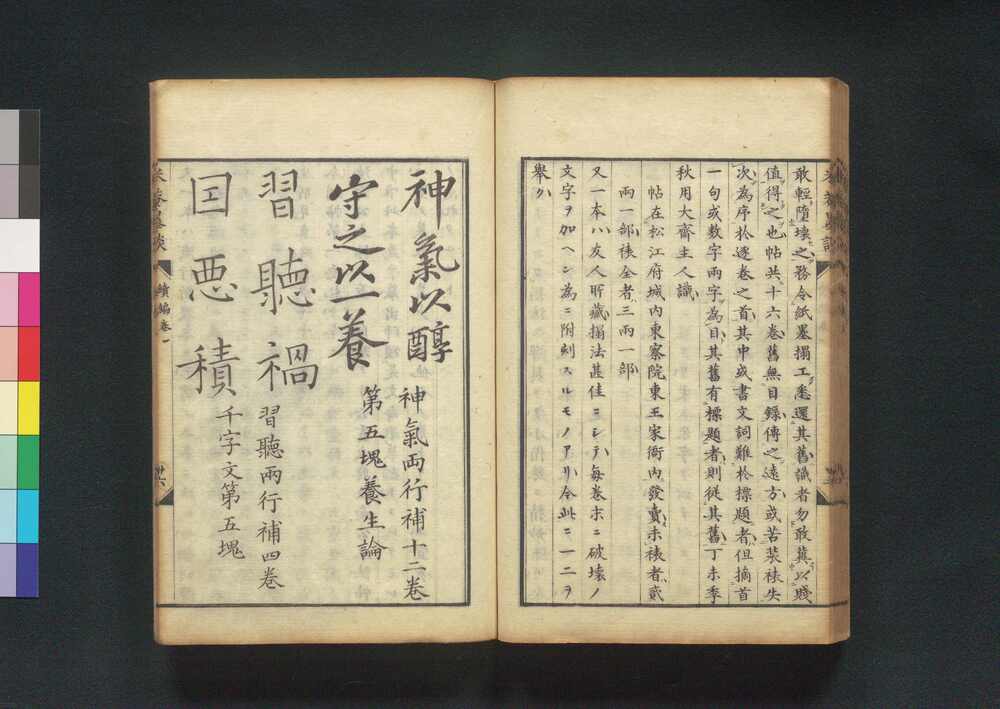 敢輕墮壊之務令紙墨搨工悉還其舊識者勿敢冀以賤
値得之也帖共十六卷舊無目錄傳之遠方或苦裝裱失
次為序於逐卷之首其中或書文詞難於標題者但摘首
一句或数字兩字為目其舊有標題者則従其舊丁未季
秋用大齋主人識
帖在松江府城内東察院東王家衙内發賣未裱者貳
兩一部裱全者三兩一部
又一本ハ友人所藏搨法甚佳ニシテ每卷末ニ破壊ノ
文字ヲ加ヘシ為ニ附刻スルモノアリ今此ニ一二ヲ
舉ク
神氣以醇
神氣両行補十二卷
守之以一養
第五塊養生論
習聽禍
習聽兩行補四卷
因悪積
千字文第五塊
續編卷一